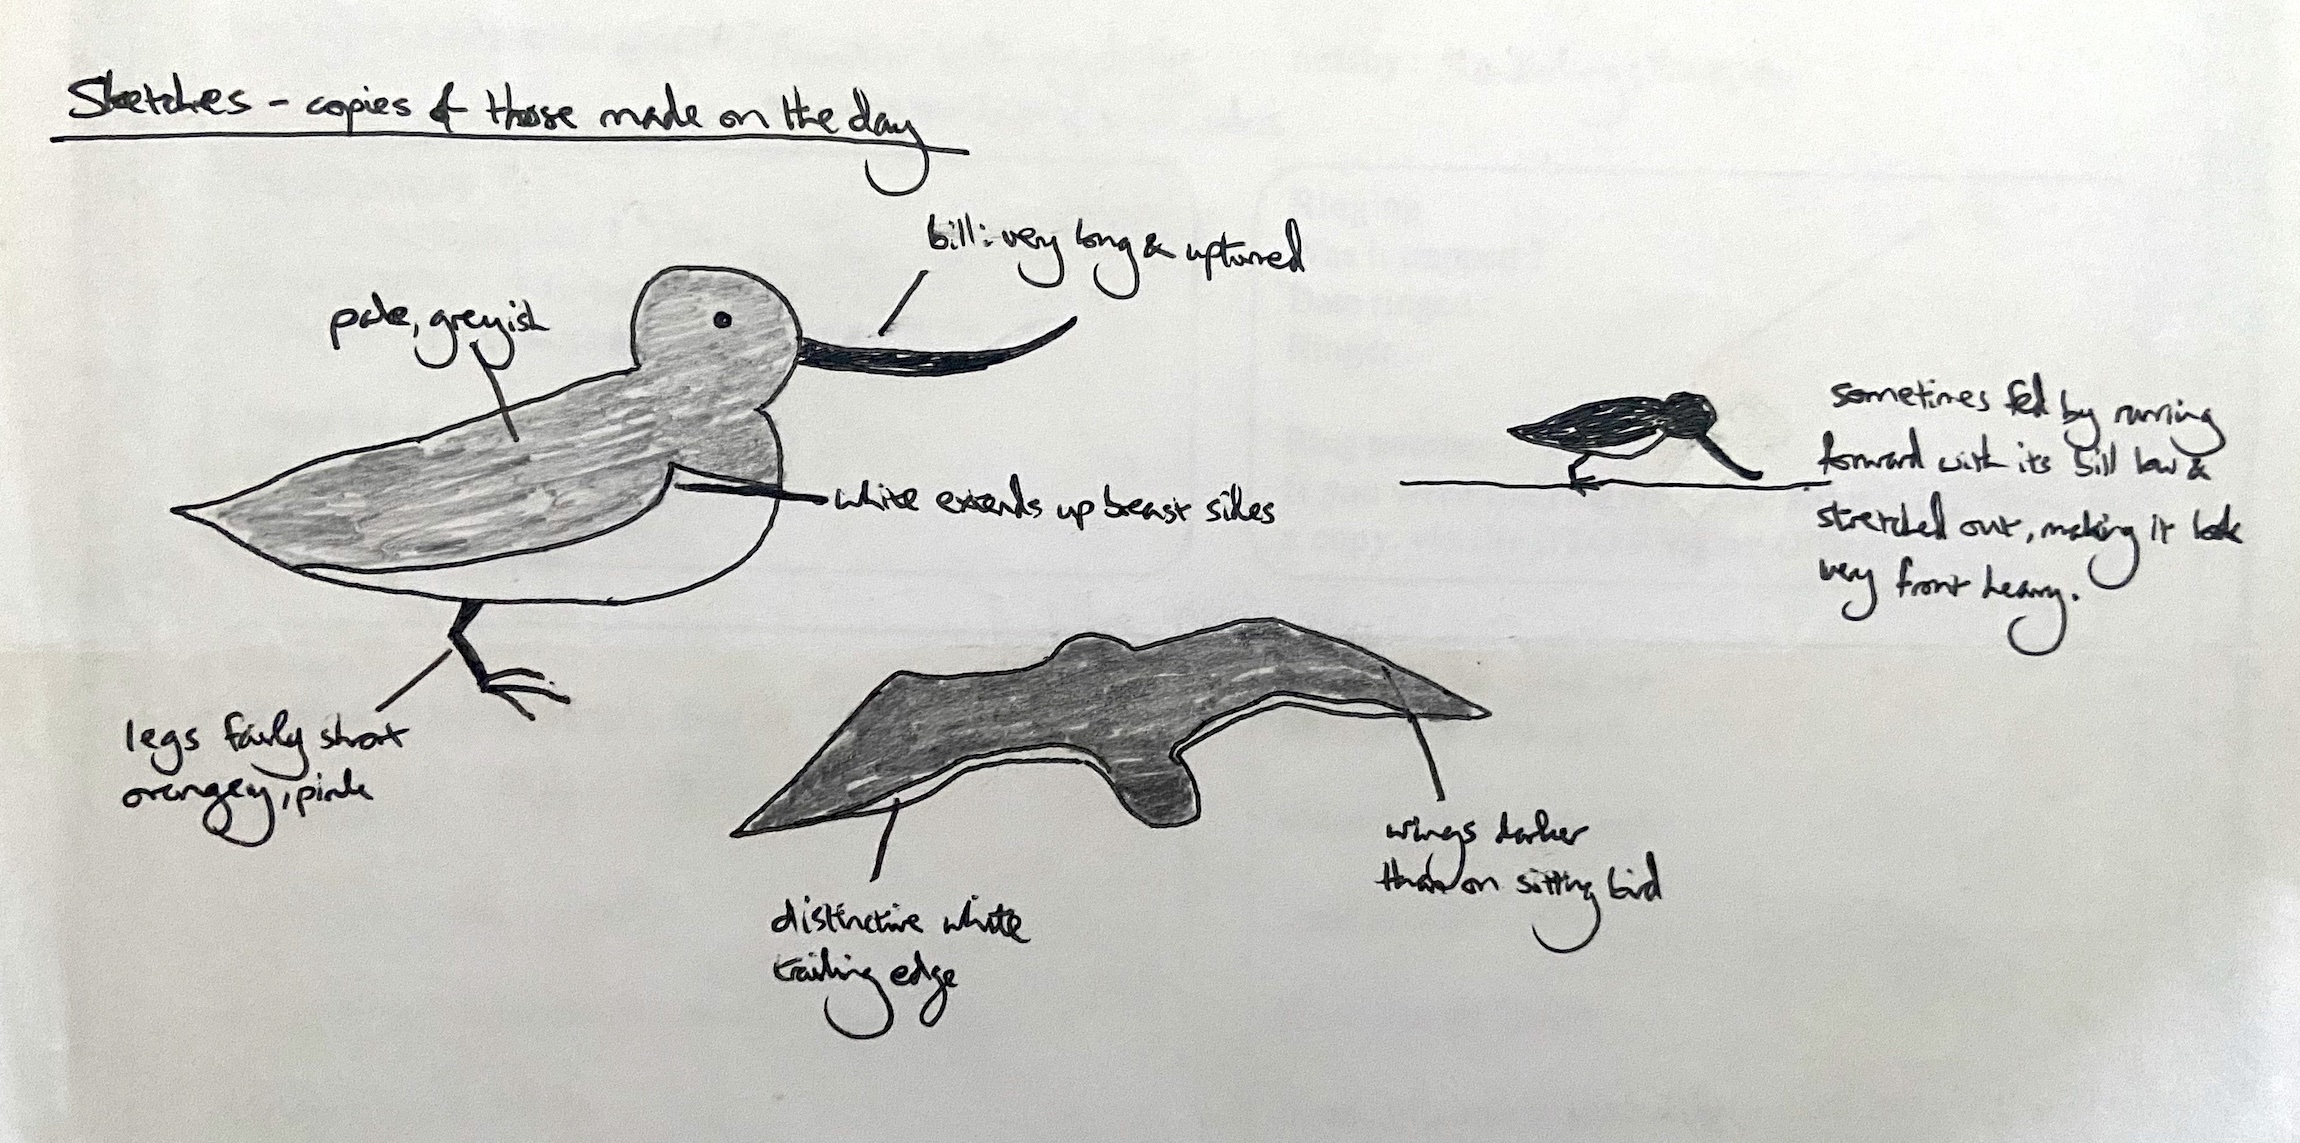 Sketches - copies of those made on the day
bill: very long & upturned
pale, greyish
sometimes fed by running
forward with its bill low &
stretched out, making it look
very front heavy.
white extends up breast sides
legs fairly short
orangey, pink
wings darker
than on sitting bird
distinctive white
trailing edge
Ringing